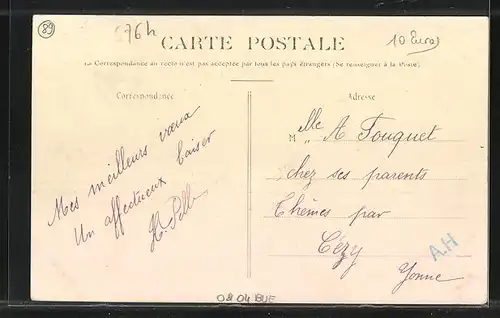 89
76h
10 Euros
CARTE POSTALE
La Correspondance au recto n'est pas acceptée par tous les pays étrangers (Se renseigner à la Poste)
Correspondance
Adresse
Mes meilleurs vœux
Un affectueux baiser
Melle A Fouquet
chez ses parents
Thèmes par
Cézy
Yonne
A.H
08 04 BUE